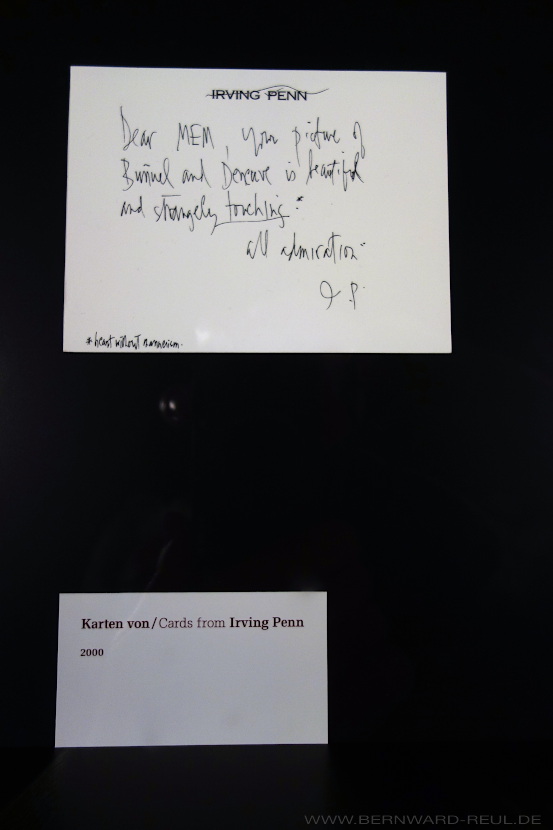 IRVING PENN
Dear MEM, your picture of
Buñuel and Deneuve is beautiful
and strangely touching.*
all admiration
I.P.
*heart without mannerism.
Karten von/Cards from Irving Penn
2000
WWW.BERNWARD-REUL.DE